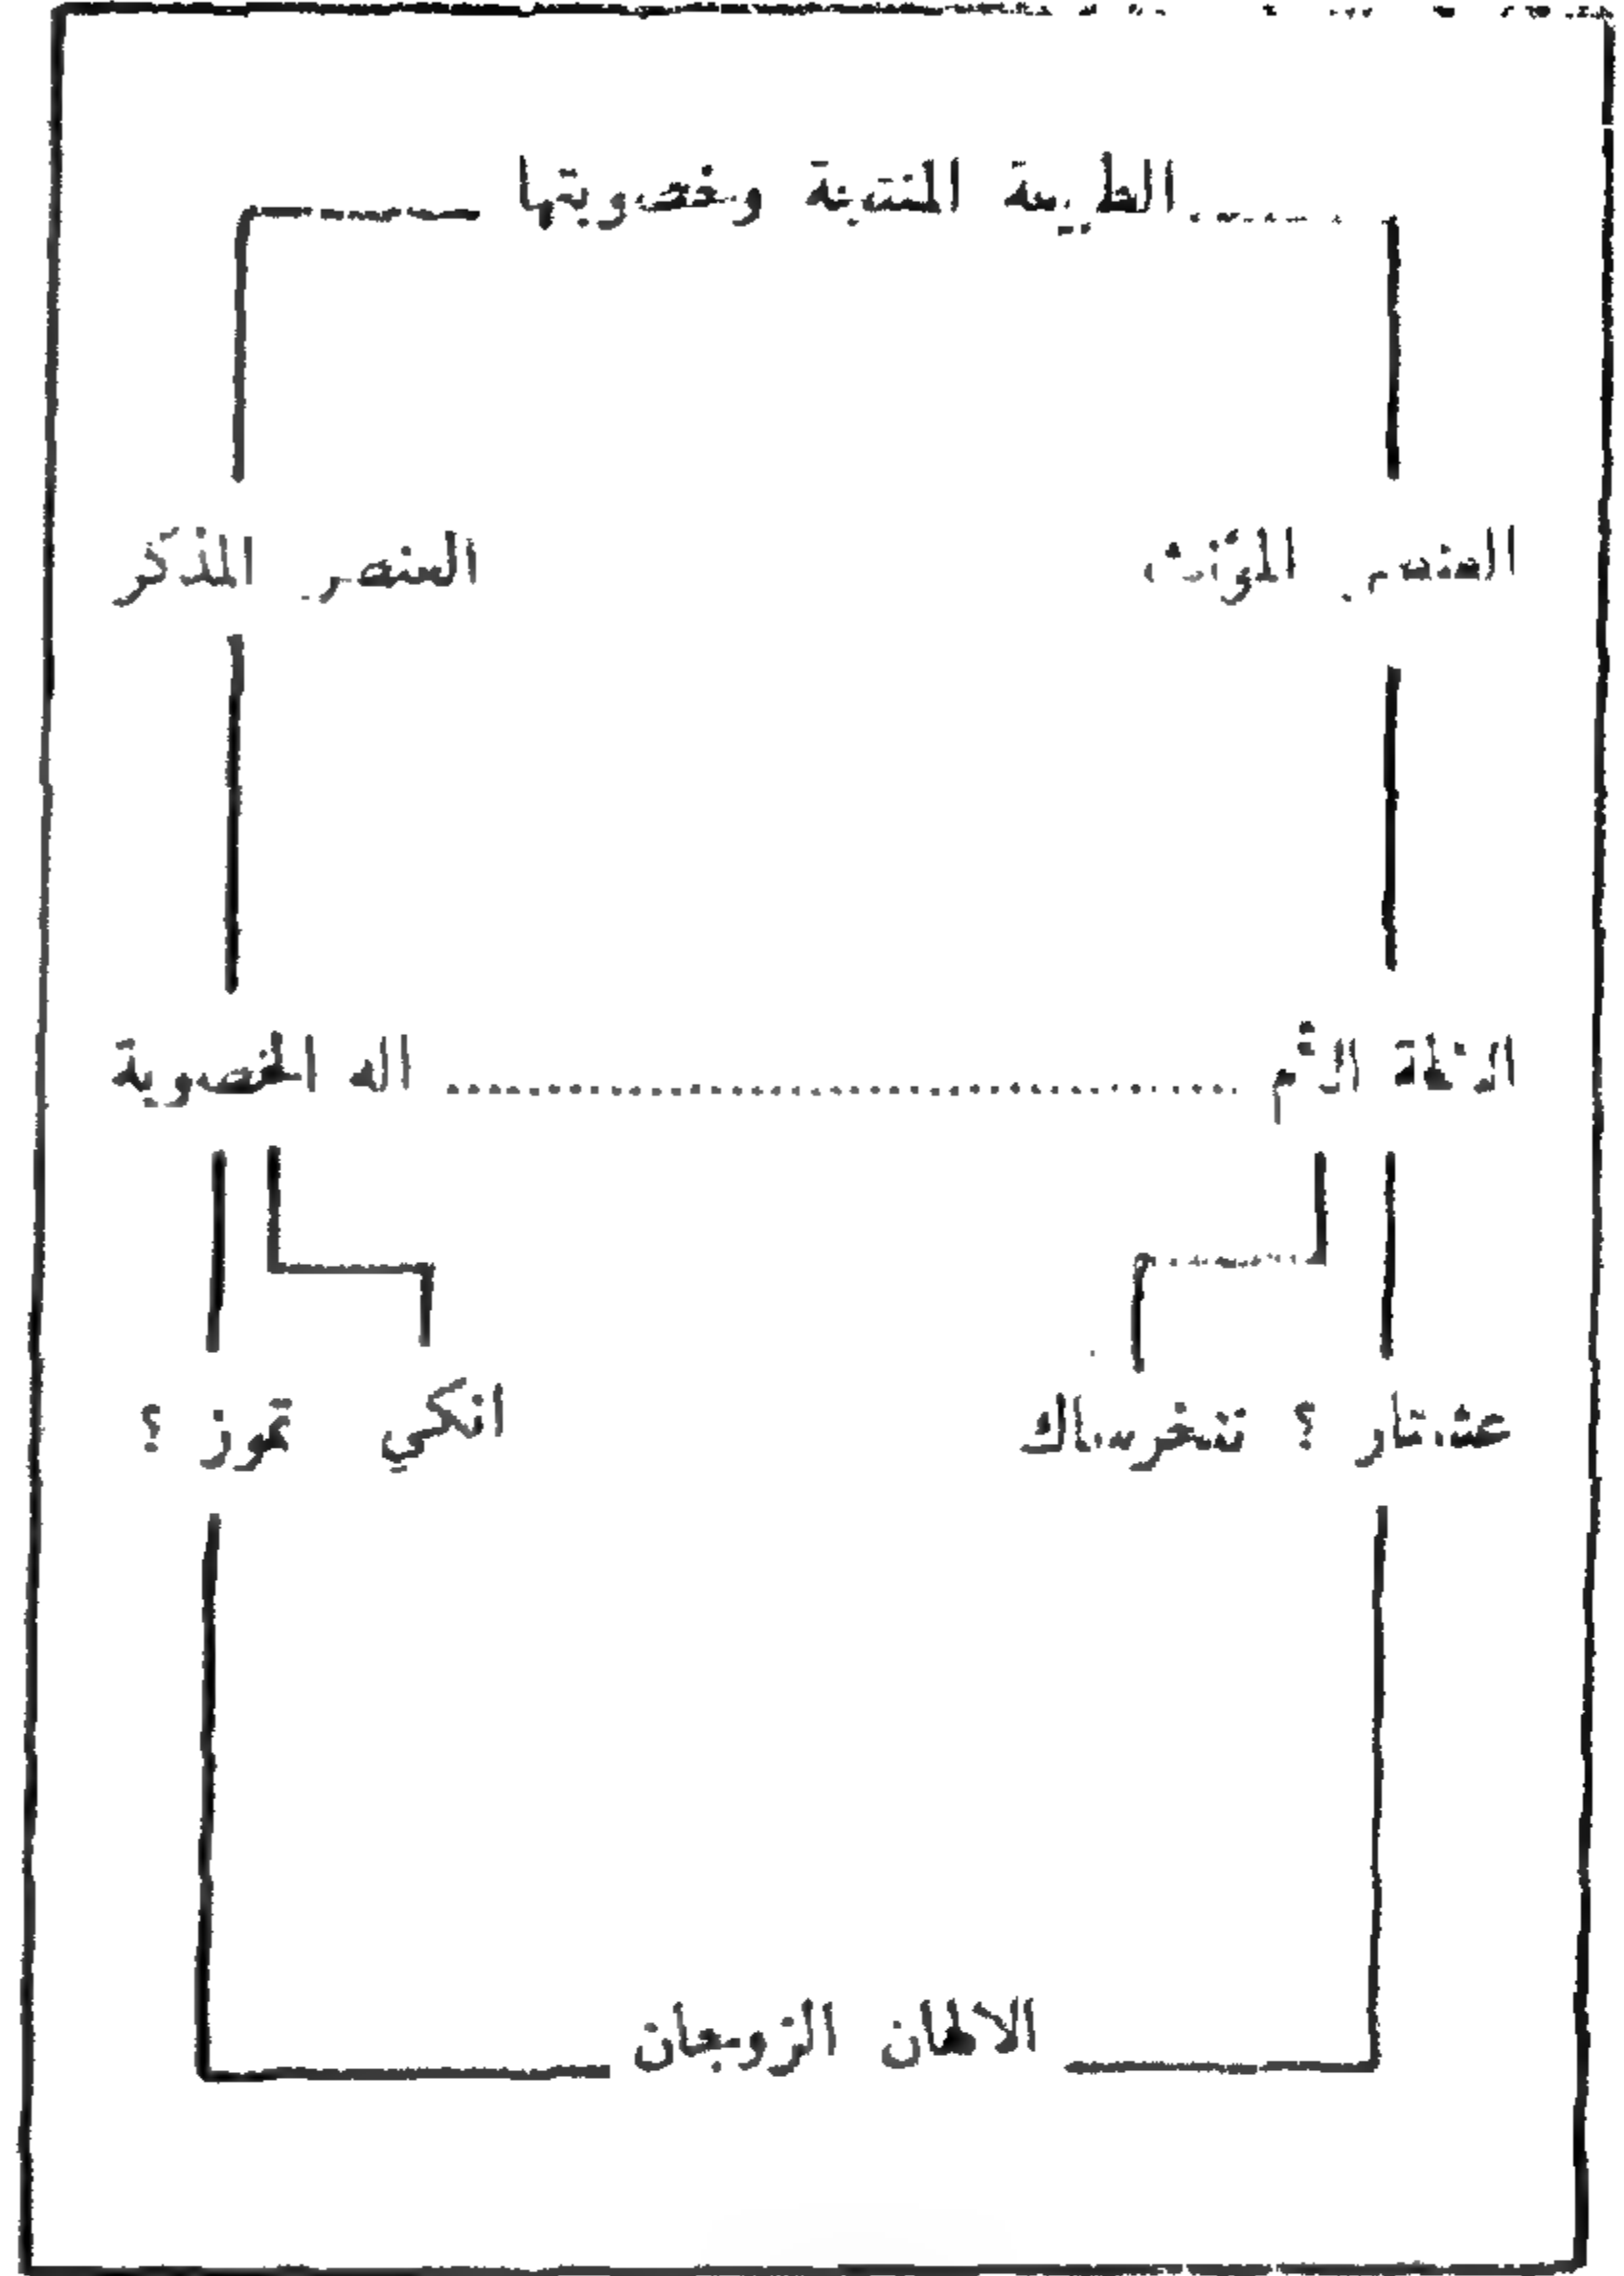 الطبيعة المنتبة وخصوبتها
العنصر المؤنث العنصر المذكر
الالهة الأم ........................ اله الخصوبة
عشتار ؟ ننخرساك انكي تموز ؟
الالهان الزوجان